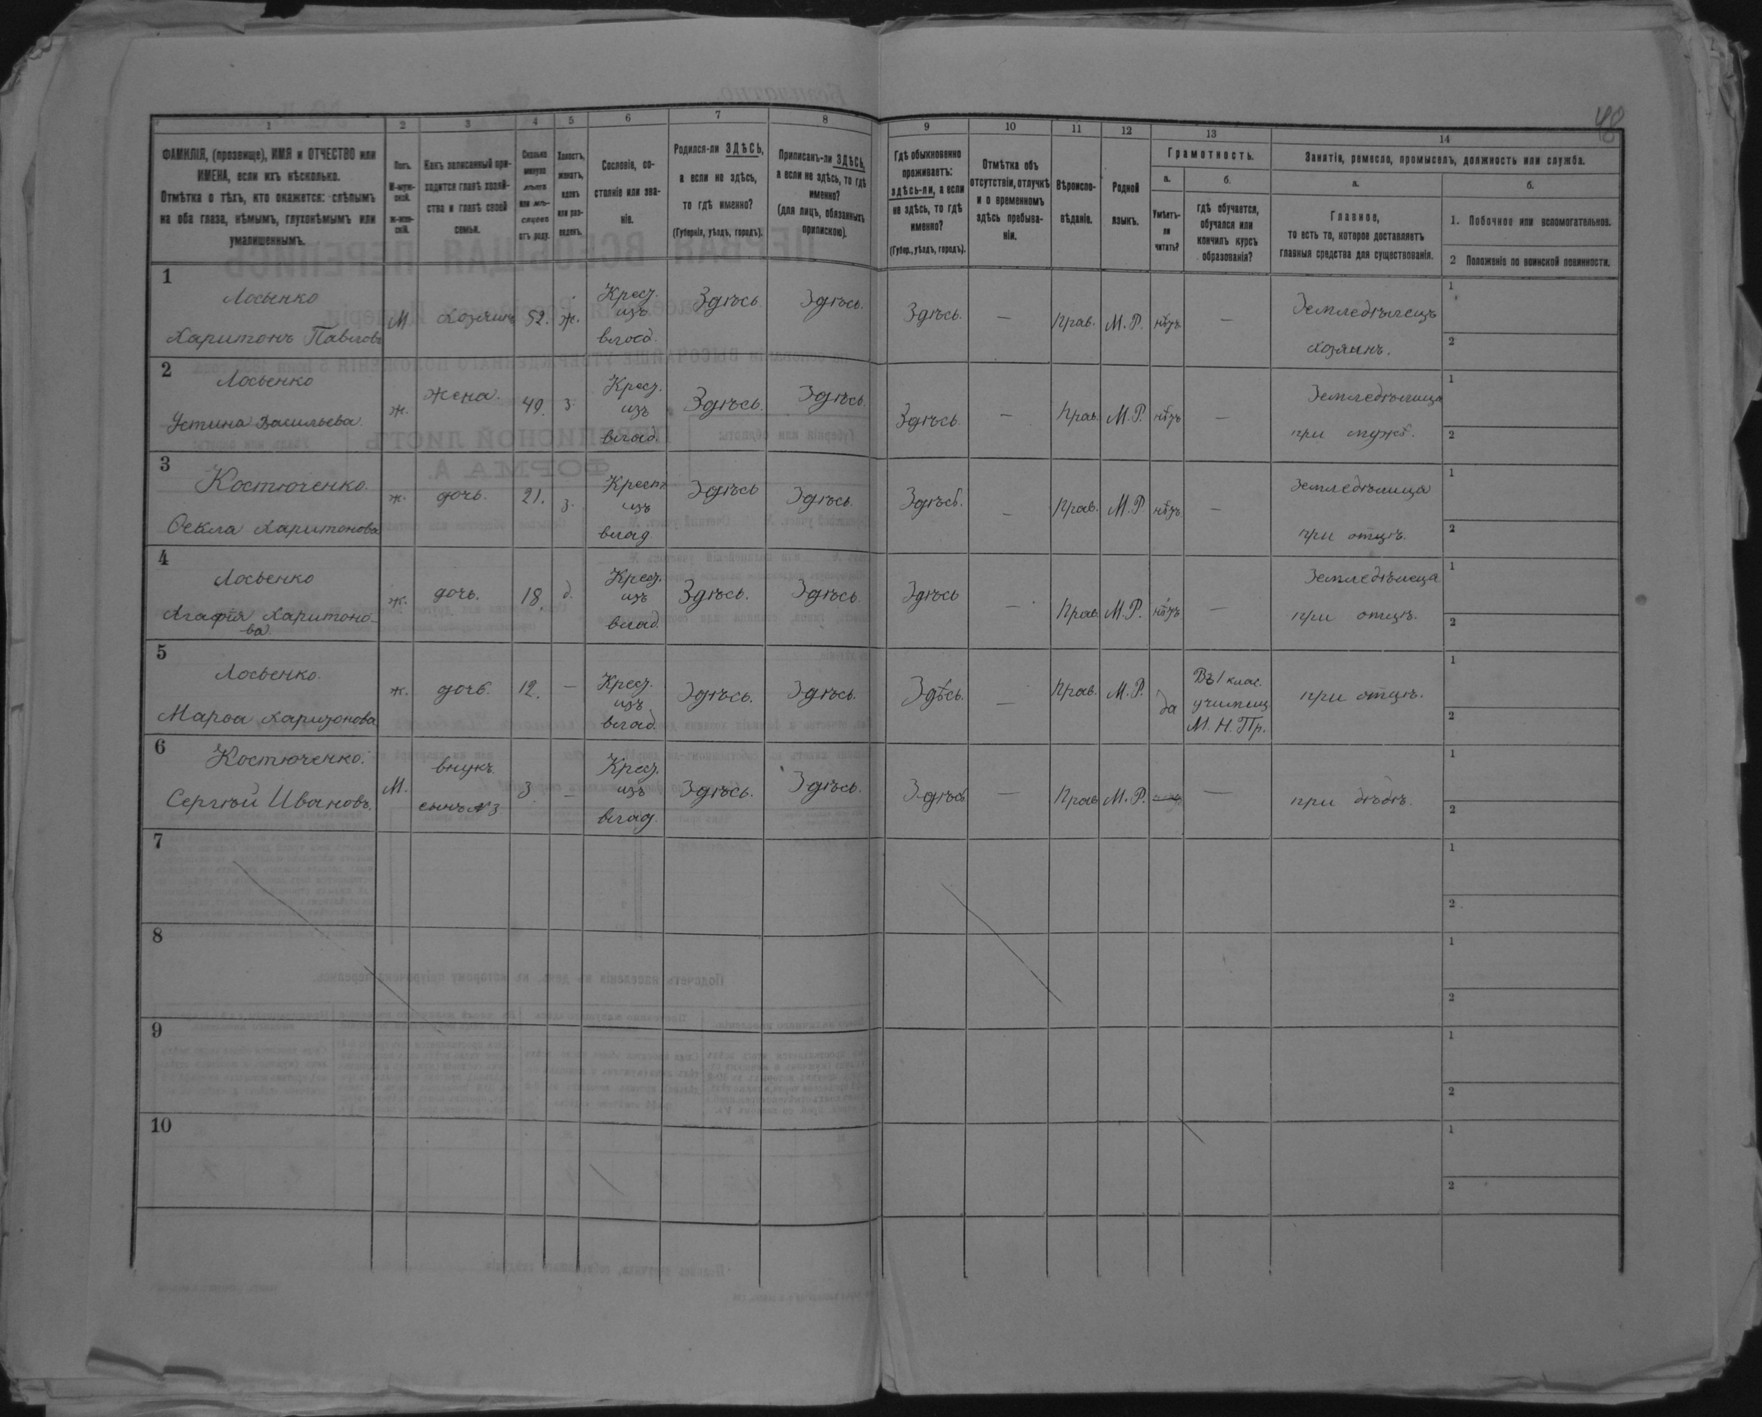 48
1 2 3 4 5 6 7 8 9 10 11 12 13 14
ФАМИЛІЯ, (прозвище), ИМЯ и ОТЧЕСТВО или
ИМЕНА, если ихъ нѣсколько.
Отмѣтка о тѣхъ, кто окажется: слѣпымъ
на оба глаза, нѣмымъ, глухонѣмымъ или
умалишеннымъ.
Полъ.
М-муж-
ской.
ж-жен-
скій.
Какъ записанный при-
ходится главѣ хозяй-
ства и главѣ своей
семьи.
Сколько
минуло
лѣтъ
или мѣ-
сяцевъ
отъ роду.
Холостъ,
женатъ,
вдовъ
или раз-
веденъ.
Сословіе, со-
стояніе или зва-
ніе.
Родился-ли ЗДѢСЬ,
а если не здѣсь,
то гдѣ именно?
(Губернія, уѣздъ, городъ).
Приписанъ-ли ЗДѢСЬ,
а если не здѣсь, то гдѣ
именно?
(для лицъ, обязанныхъ
припискою).
Гдѣ обыкновенно
проживаетъ:
здѣсь-ли, а если
не здѣсь, то гдѣ
именно?
(Губер., уѣздъ, городъ).
Отмѣтка объ
отсутствіи, отлучкѣ
и о временномъ
здѣсь пребыва-
ніи.
Вѣроиспо-
вѣданіе.
Родной
языкъ.
Грамотность.
а.
Умѣетъ-
ли
читать?
б.
гдѣ обучается,
обучался или
кончилъ курсъ
образованія?
Занятіе, ремесло, промыселъ, должность или служба.
а.
Главное,
то есть то, которое доставляетъ
главныя средства для существованія.
б.
1. Побочное или вспомогательное.
2 Положеніе по воинской повинности.
1
Лосьенко
Харитонъ Павловъ
М хозяинъ 52. ж.
Крест.
изъ
влад.
Здѣсь Здѣсь. Здѣсь. — Прав. М.Р. нѣтъ —
Земледѣлецъ
хозяинъ.
1
2
2
Лосьенко
Устина Васильева
ж. жена. 49. з.
Крест.
изъ
влад.
Здѣсь. Здѣсь. Здѣсь. — Прав. М.Р. нѣтъ —
Земледѣлица
при мужѣ.
1
2
3
Костюченко.
Ѳекла Харитонова
ж. дочь. 21. з.
Крест.
изъ
влад
Здѣсь Здѣсь. Здѣсь. — Прав. М.Р. нѣтъ —
Земледѣлица
при отцѣ.
1
2
4
Лосьенко
Агафія Харитоно-
ва.
ж. дочь. 18. д.
Крест.
изъ
влад.
Здѣсь. Здѣсь Здѣсь — Прав. М.Р. нѣтъ —
Земледѣлица
при отцѣ.
1
2
5
Лосьенко.
Марѳа Харитонова
ж. дочь. 12. —
Крест.
изъ
влад.
Здѣсь. Здѣсь. Здѣсь. — Прав. М.Р. да
Въ 1 клас.
училищ
М. Н. Пр.
при отцѣ.
1
2
6
Костюченко.
Сергѣй Ивановъ.
М.
внукъ
сынъ №3
3 —
Крест.
изъ
влад.
Здѣсь. Здѣсь. Здѣсь — Прав. М.Р. —
при дѣдѣ.
1
2
7
1
2
8
1
2
9
1
2
10
1
2